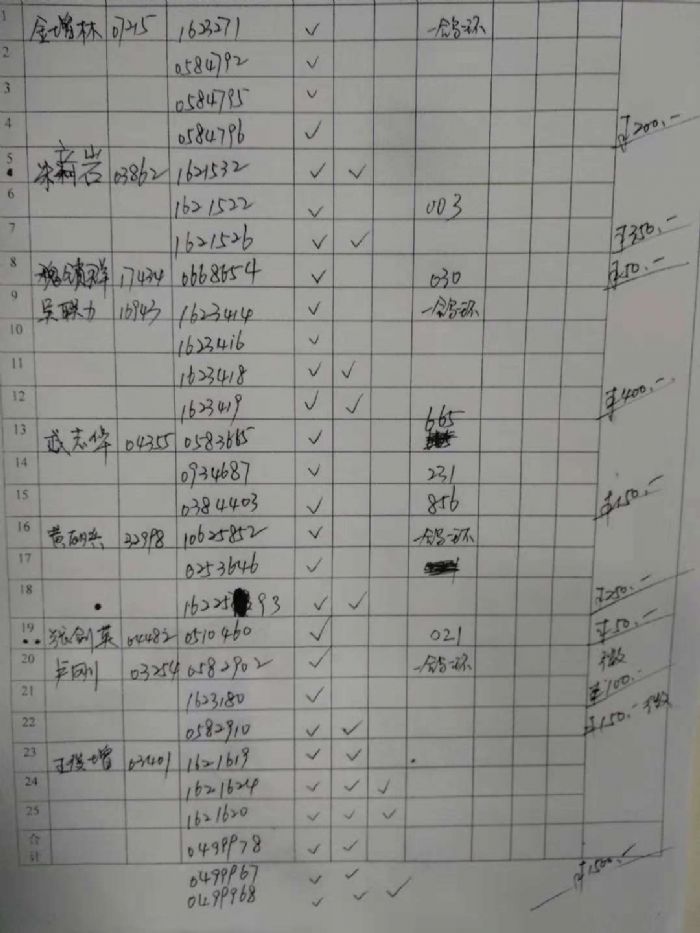 1 金增林 07215 1623271 ✓ 一鸽一环
2 0584792 ✓
3 0584795 ✓
4 0584796 ✓ ¥200.-
5 岩 03862 1621532 ✓ ✓
6 1621522 ✓ 003
7 1621526 ✓ ✓ ¥350.-
8 17434 0668654 ✓ 030 ¥50.-
9 吴联力 16943 1623414 ✓ 一鸽一环
10 1623416 ✓
11 1623418 ✓ ✓
12 1623419 ✓ ✓ ¥400.-
13 戚志华 04355 0583665 ✓ 665
14 0934687 ✓ 231
15 0384403 ✓ 856 ¥150.-
16 黄 32998 10625852 ✓ 一鸽一环
17 0253646 ✓
18 16225 93 ✓ ✓ ¥250.-
19 张剑英 04482 0510460 ✓ 021 ¥50.-
20 03254 0582902 ✓ 一鸽一环
21 1623180 ✓ ¥100.-
22 0582910 ✓ ✓ ¥150.-
23 王俊增 03401 1621619 ✓ ✓
24 1621624 ✓ ✓ ✓
25 1621620 ✓ ✓ ✓
合计 0499978 ✓ ✓
0499967 ✓ ✓ ¥1500.-
0499968 ✓ ✓ ✓